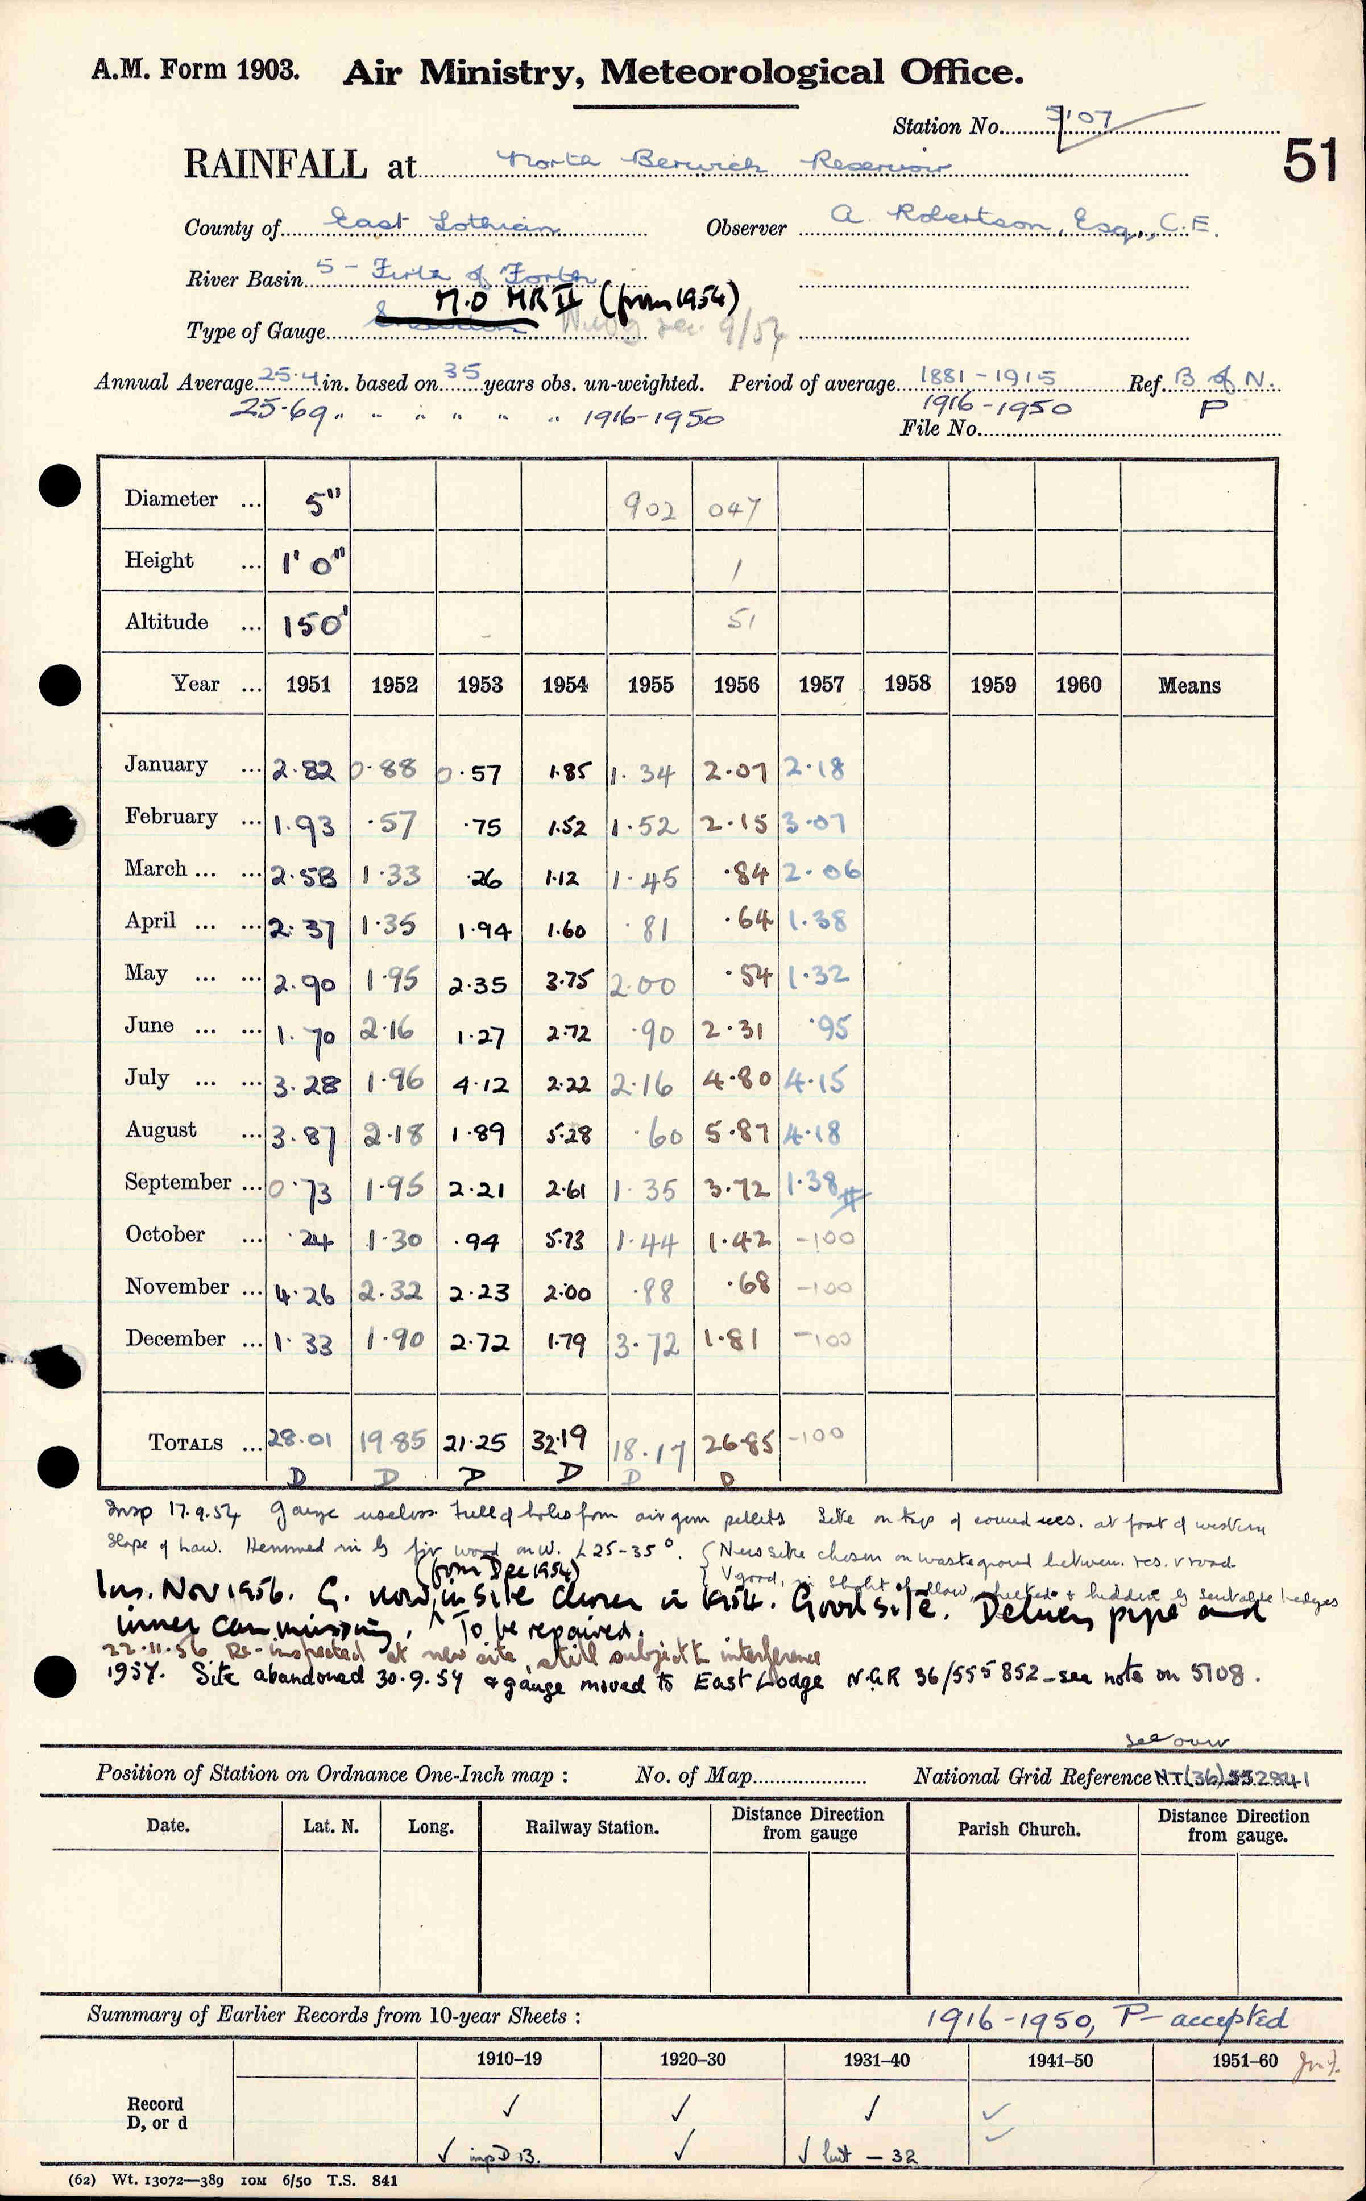 A.M. Form 1903. Air Ministry, Meteorological Office.
Station No. 5107
RAINFALL at North Berwick Reservoir
51
County of East Lothian Observer A. Robertson, Esq., C.E.
River Basin 5 - Firth of Forth
M.O MK II (from 1954)
Type of Gauge 9/54
Annual Average 25.4 in. based on 35 years obs. un-weighted. Period of average 1881-1915 Ref. B of N.
25.69 " " " " " " 1916-1950 1916-1950 P
File No.
Diameter ... 5" 902 047
Height ... 1' 0" 1
Altitude ... 150' 51
Year ... 1951 1952 1953 1954 1955 1956 1957 1958 1959 1960 Means
January ... 2.82 0.88 0.57 1.85 1.34 2.07 2.18
February ... 1.93 .57 .75 1.52 1.52 2.15 3.07
March ... ... 2.58 1.33 .26 1.12 1.45 .84 2.06
April ... ... 2.37 1.35 1.94 1.60 .81 .64 1.38
May ... ... 2.90 1.95 2.35 3.75 2.00 .54 1.32
June ... ... 1.70 2.16 1.27 2.72 .90 2.31 .95
July ... ... 3.28 1.96 4.12 2.22 2.16 4.80 4.15
August ... 3.87 2.18 1.89 5.28 .60 5.87 4.18
September ... 0.73 1.95 2.21 2.61 1.35 3.72 1.38
October ... .24 1.30 .94 5.73 1.44 1.42 -100
November ... 4.26 2.32 2.23 2.00 .88 .68 -100
December ... 1.33 1.90 2.72 1.79 3.72 1.81 -100
TOTALS ... 28.01 19.85 21.25 32.19 18.17 26.85 -100
D D D D D D
Insp 17.9.54 Gauge useless. Full of holes from air gun pellets Site on top of covered res. at foot of western
slope of Law. Hemmed in by fir wood on W. L 25-35°. { New site chosen on waste ground between res. & road
(from Dec 1954) { V good, in shelter & hidden by suitable hedges
Ins. Nov 1956. G. now in site chosen in 1954. Good site. Delivery pipe and
inner can missing. ^ To be repaired.
22.11.56. Re-inspected at new site, still subject to interference
1957. Site abandoned 30.9.57 & gauge moved to East Lodge N.G.R 36/555 852 - see note on 5108.
see over
Position of Station on Ordnance One-Inch map : No. of Map National Grid Reference NT(36)552841
Date. Lat. N. Long. Railway Station. Distance Direction from gauge Parish Church. Distance Direction from gauge.
Summary of Earlier Records from 10-year Sheets : 1916-1950, P- accepted
1910-19 1920-30 1931-40 1941-50 1951-60
Record ✓ ✓ ✓ ✓
D, or d ✓ imp D 13. ✓ ✓ but - 32 ✓
(62) Wt. 13072-389 10M 6/50 T.S. 841